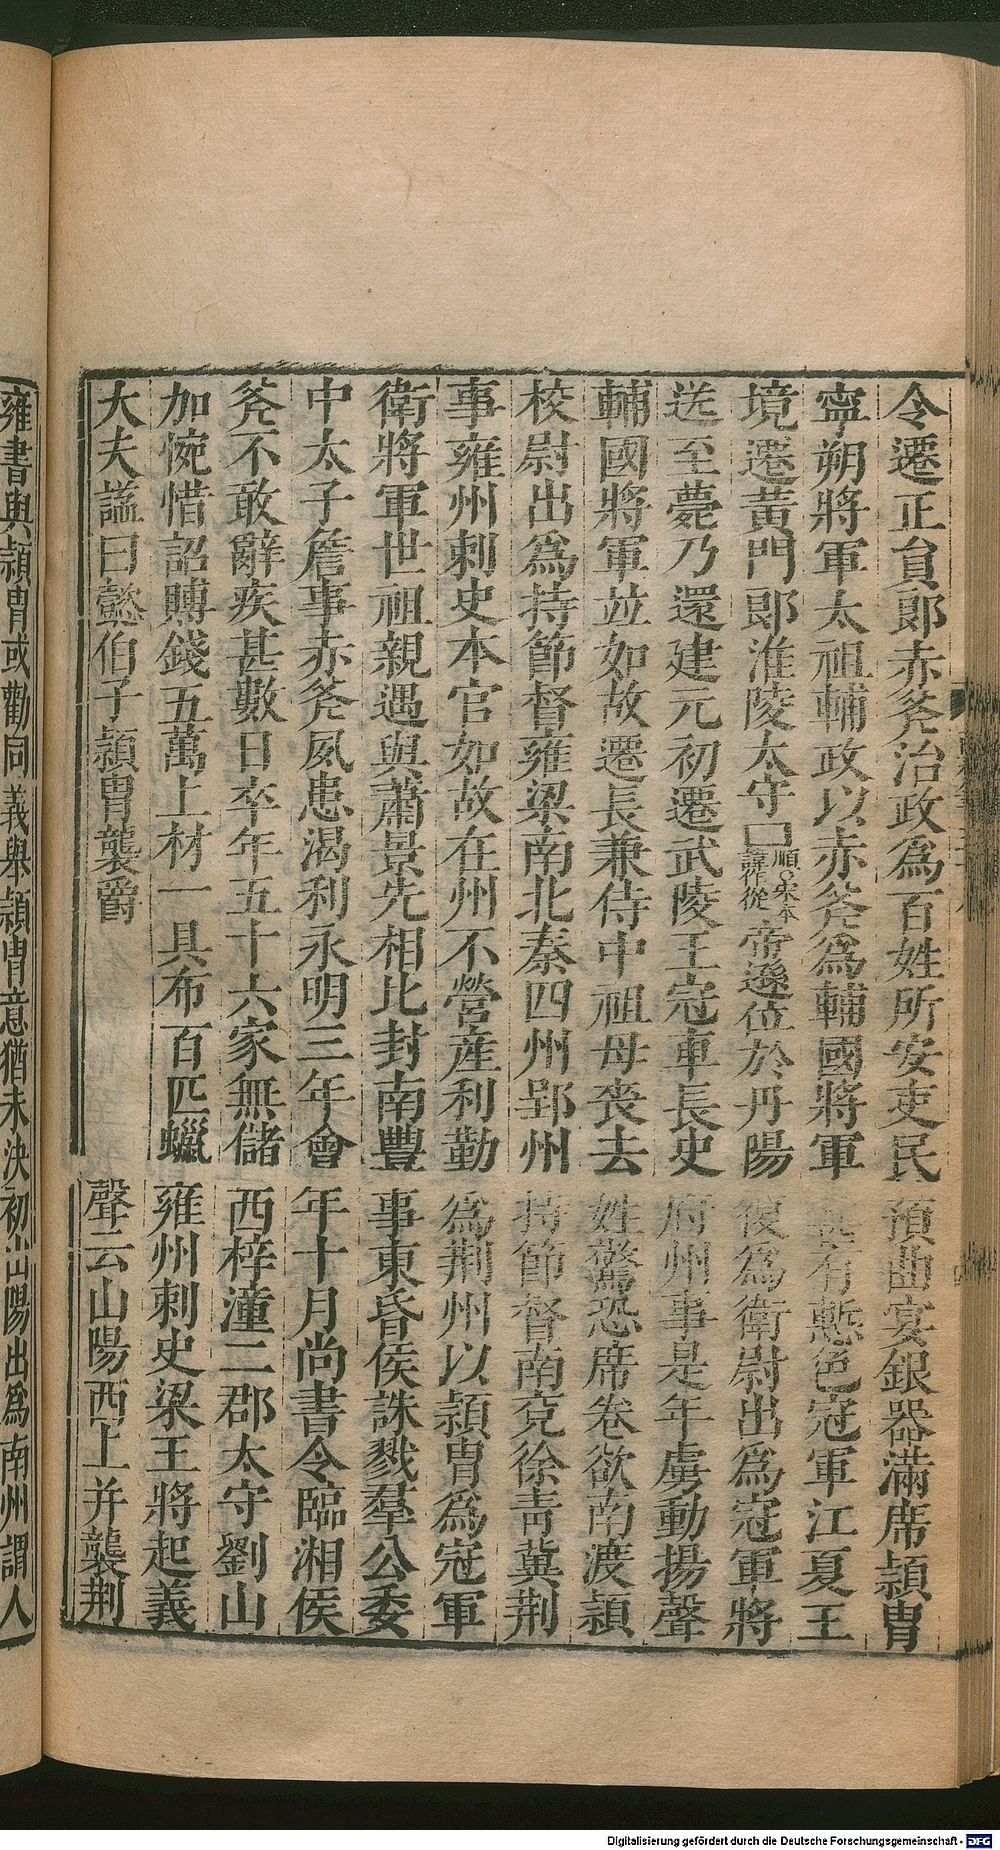 令遷正員郎赤斧治政爲百姓所安吏民預曲宴銀器滿席穎胄
寧朔將軍太祖輔政以赤斧爲輔國將軍甚有慙色冠軍江夏王
境遷黃門郎淮陵太守囗順○宋本諱作從帝遜位於丹陽復爲衛尉出爲冠軍將
送至薨乃還建元初遷武陵王冠車長史府州事是年虜動揚聲
輔國將軍並如故遷長兼侍中祖母喪去姓驚恐席卷欲南渡穎
校尉出爲持節督雍梁南北秦四州郢州持節督南兗徐青冀荆
事雍州刺史本官如故在州不營產利勤爲荆州以穎胄爲冠軍
衛將軍世祖親遇與蕭景先相比封南豐事東昏侯誅戮羣公委
中太子詹事赤斧夙患渴利永明三年會年十月尚書令臨湘侯
斧不敢辭疾甚數日卒年五十六家無儲西梓潼二郡太守劉山
加惋惜詔賻錢五萬上材一具布百匹蠟雍州刺史梁王將起義
大夫諡曰懿伯子穎胄襲爵聲云山陽西上并襲荆
雍書與穎胄或勸同義舉穎胄意猶未決初山陽出爲南州謂人
Digitalisierung gefördert durch die Deutsche Forschungsgemeinschaft - DFG